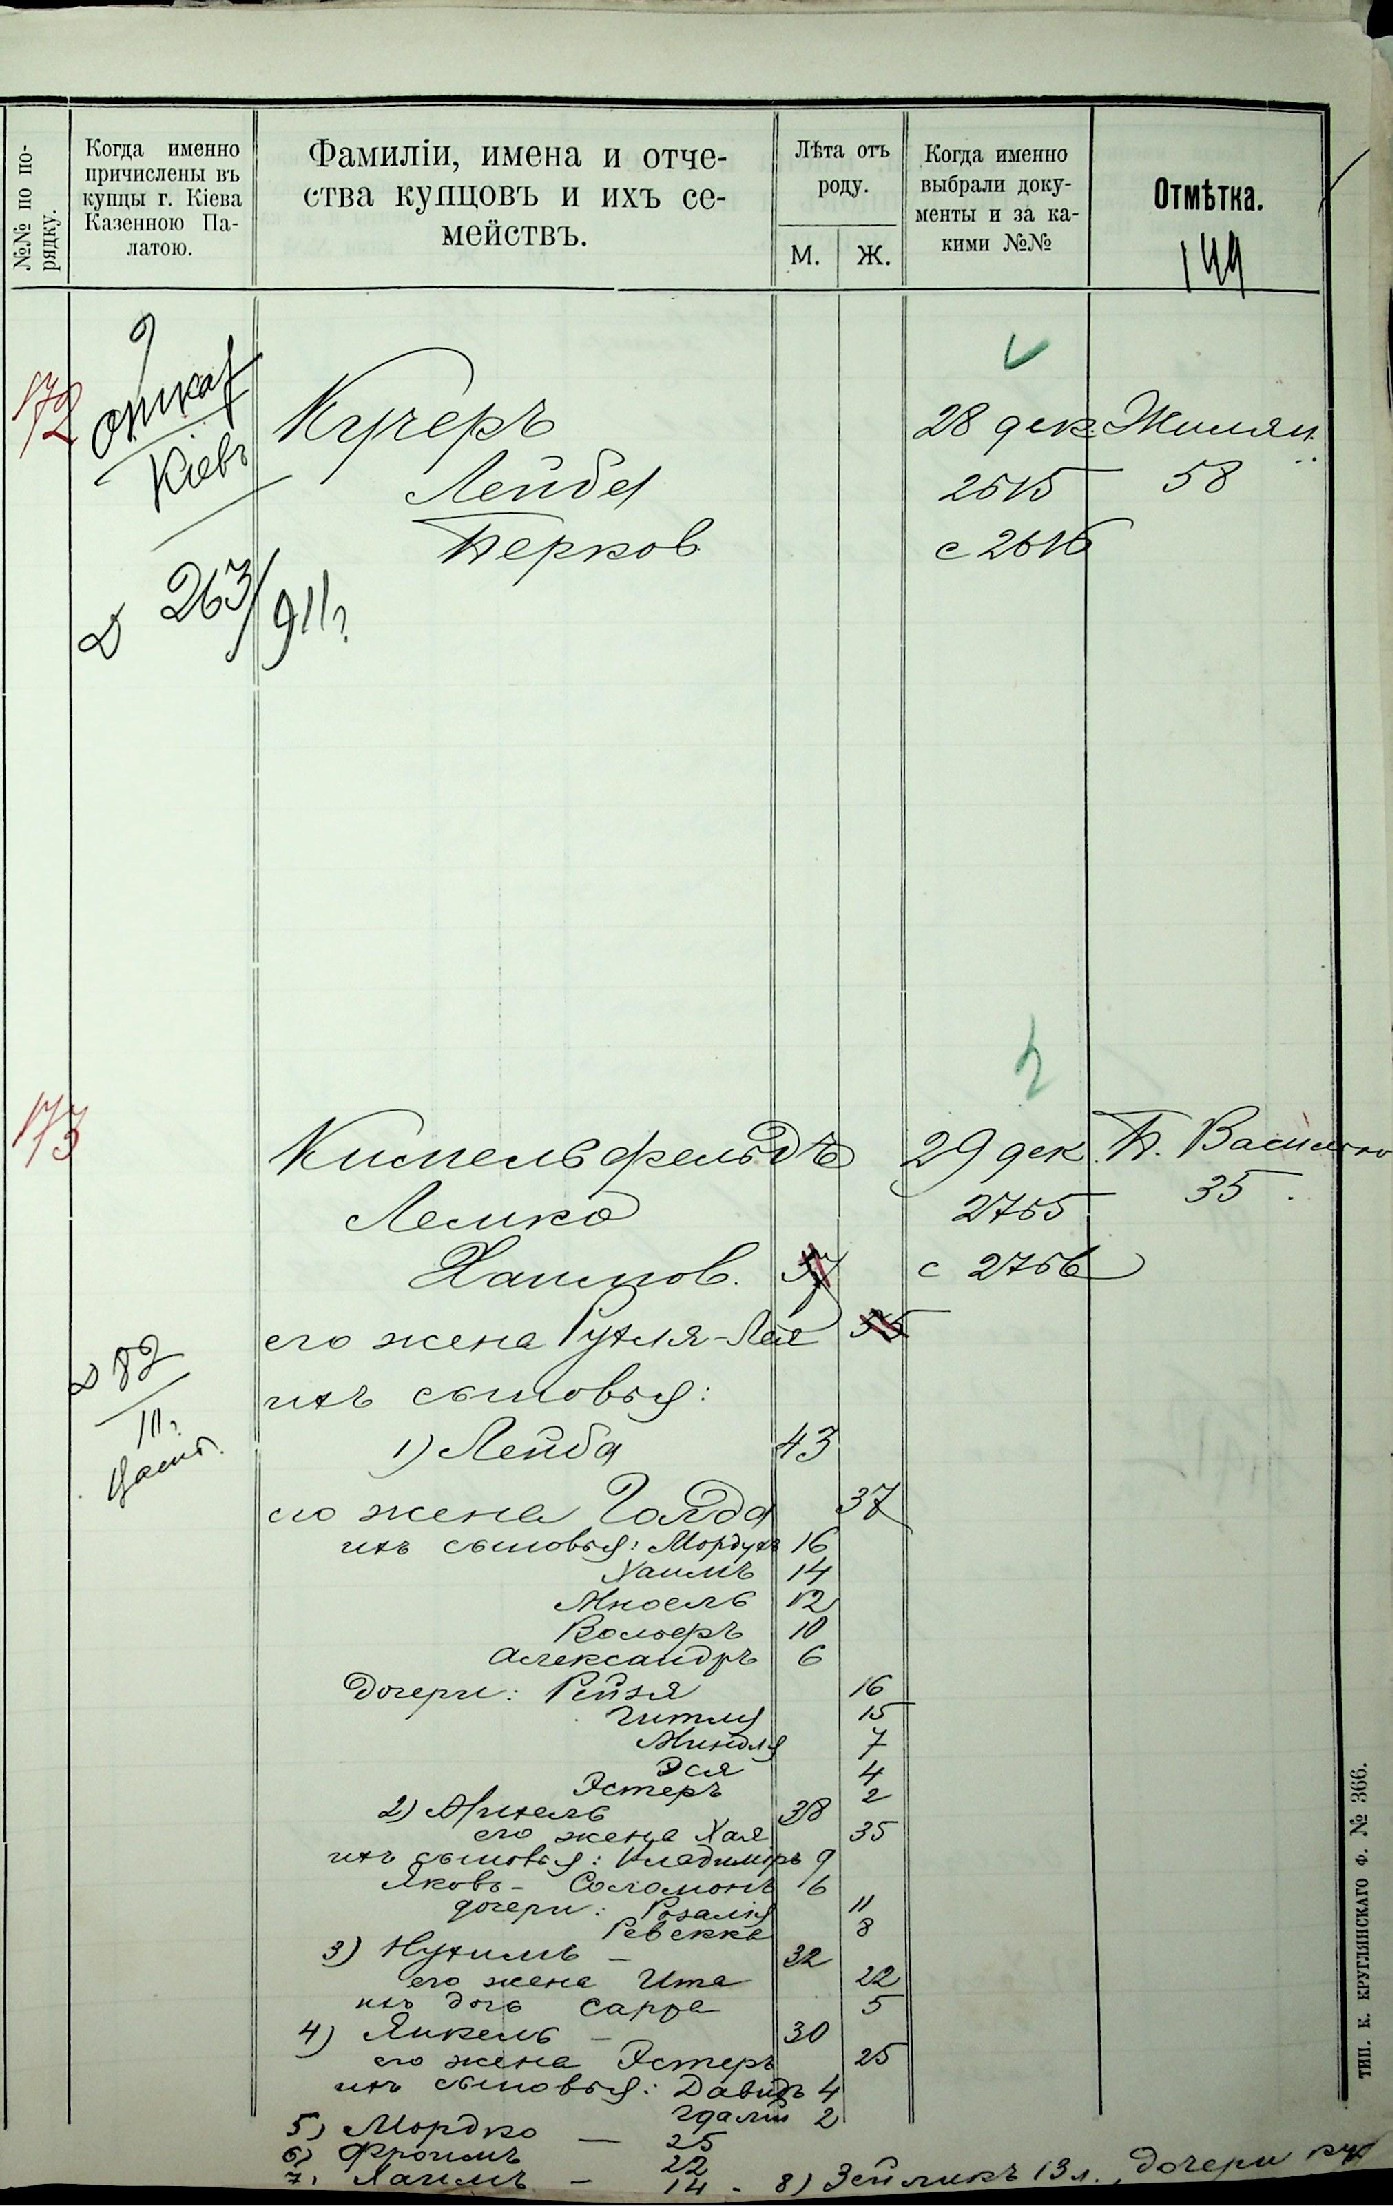 №№ по по-
рядку.
Когда именно
причислены въ
купцы г. Кіева
Казенною Па-
латою.
Фамиліи, имена и отче-
ства купцовъ и ихъ се-
мействъ.
Лѣта отъ
роду.
М. Ж.
Когда именно
выбрали доку-
менты и за ка-
кими №№
Отмѣтка.
144
172
Кіевъ
263/911г
Кучеръ 28 дек. Жилян.
Лейба 2615 58
Берков с 2616
173
Кимельфельдъ 29 дек. Б. Васильк
Лемко 2755 35.
Хаимов. 57 с 2756
его жена Рухля-Лея 55
ихъ сыновья:
82
11г.
1) Лейба 43
его жена Голда 37
ихъ сыновья: Мордухъ 16
Хаимъ 14
12
Вольфъ 10
Александръ 6
Дочери: Рейзя 16
Гитля 15
Миндля 7
Эся 4
Эстеръ 2
2) 38
его жена Хая 35
ихъ сыновья: Владиміръ 9
Яковъ-Соломонъ 6
дочери: Розалія 11
Ревекка 8
3) Нухимъ — 32
его жена Ита 22
ихъ дочь Сарра 5
4) Янкель — 30
его жена Эстеръ 25
ихъ сыновья: Давидъ 4
Гдалій 2
5) Мордко — 25
6) Фроимъ 22
7. Хаимъ — 14 - 8) Зейликъ 13 л., дочери
ТИП. К. КРУГЛЯНСКАГО Ф. № 366.